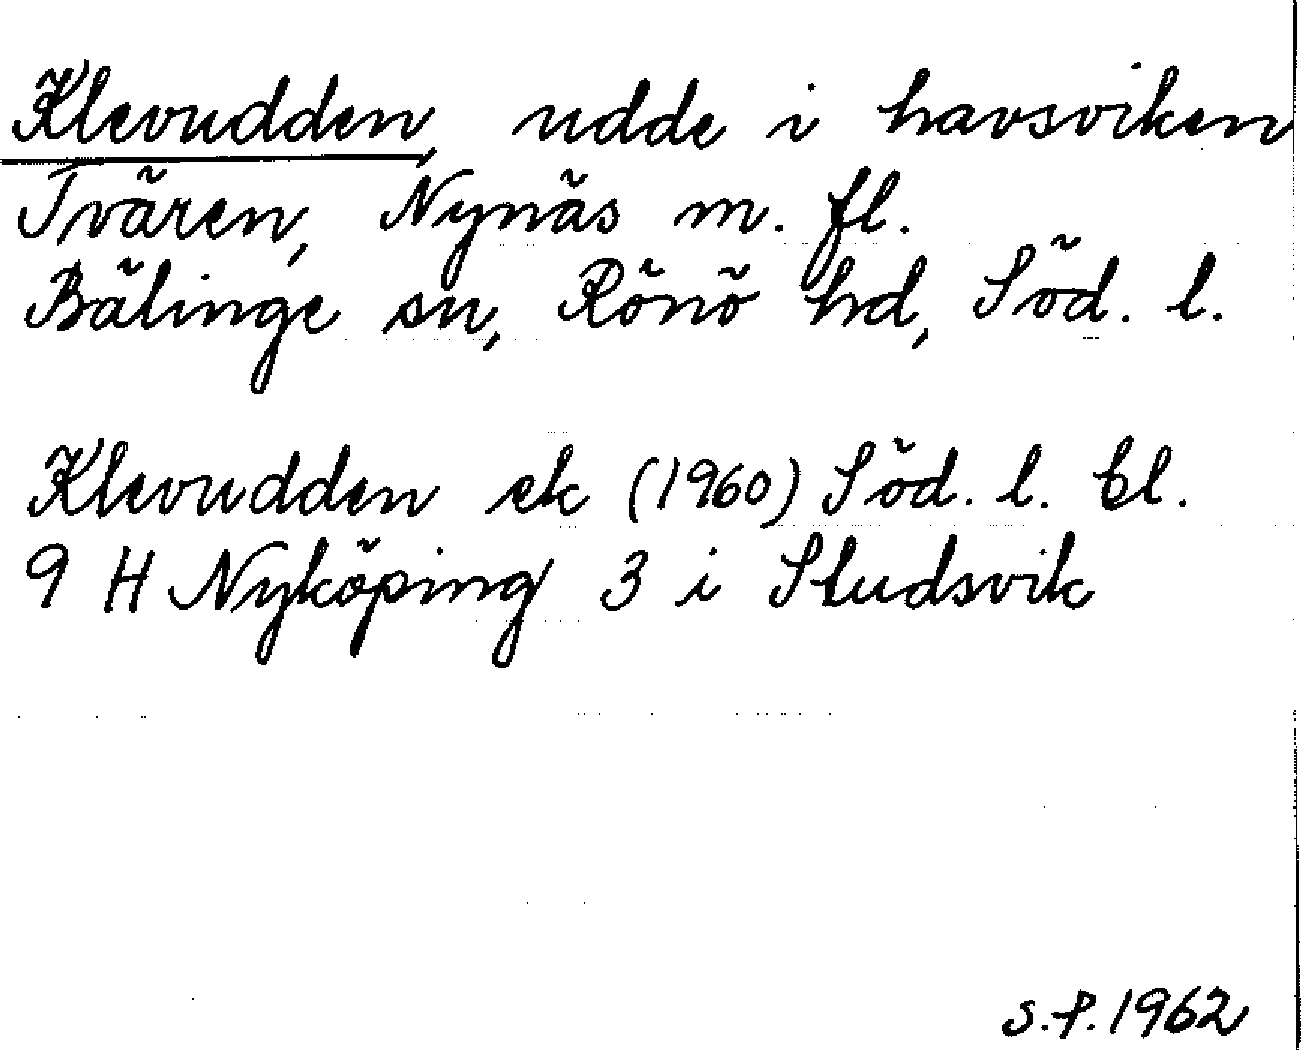 Klevudden, udde i havsviken
Tvären, Nynäs m. fl.
Bälinge sn, Rönö hd, Söd. l.
Klevudden ek (1960) Söd. l. bl.
9 H Nyköping 3 i Studsvik
S.P. 1962